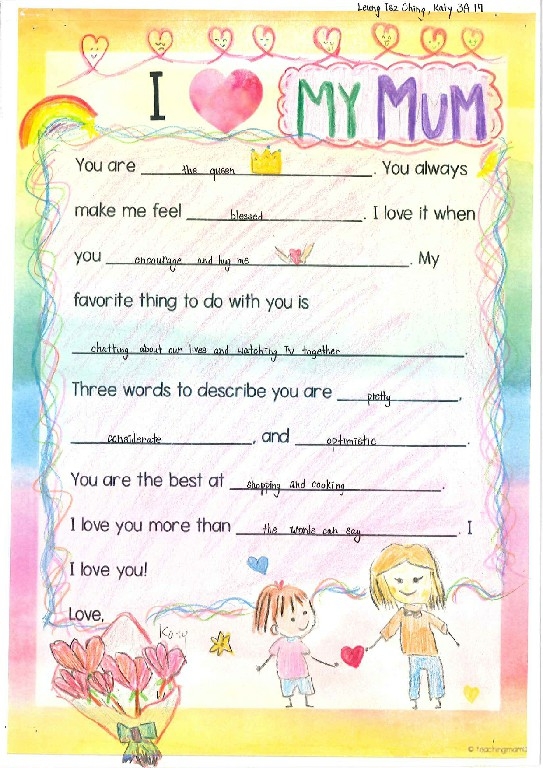 Leung Tsz Ching, Katy 3A 17
I MY MUM
You are the queen. You always
make me feel blessed. I love it when
you encourage and hug me. My
favorite thing to do with you is
chatting about our lives and watching TV together.
Three words to describe you are pretty,
considerate, and optimistic.
You are the best at shopping and cooking.
I love you more than the words can say. I
I love you!
Love,
Katy
© teachingmama